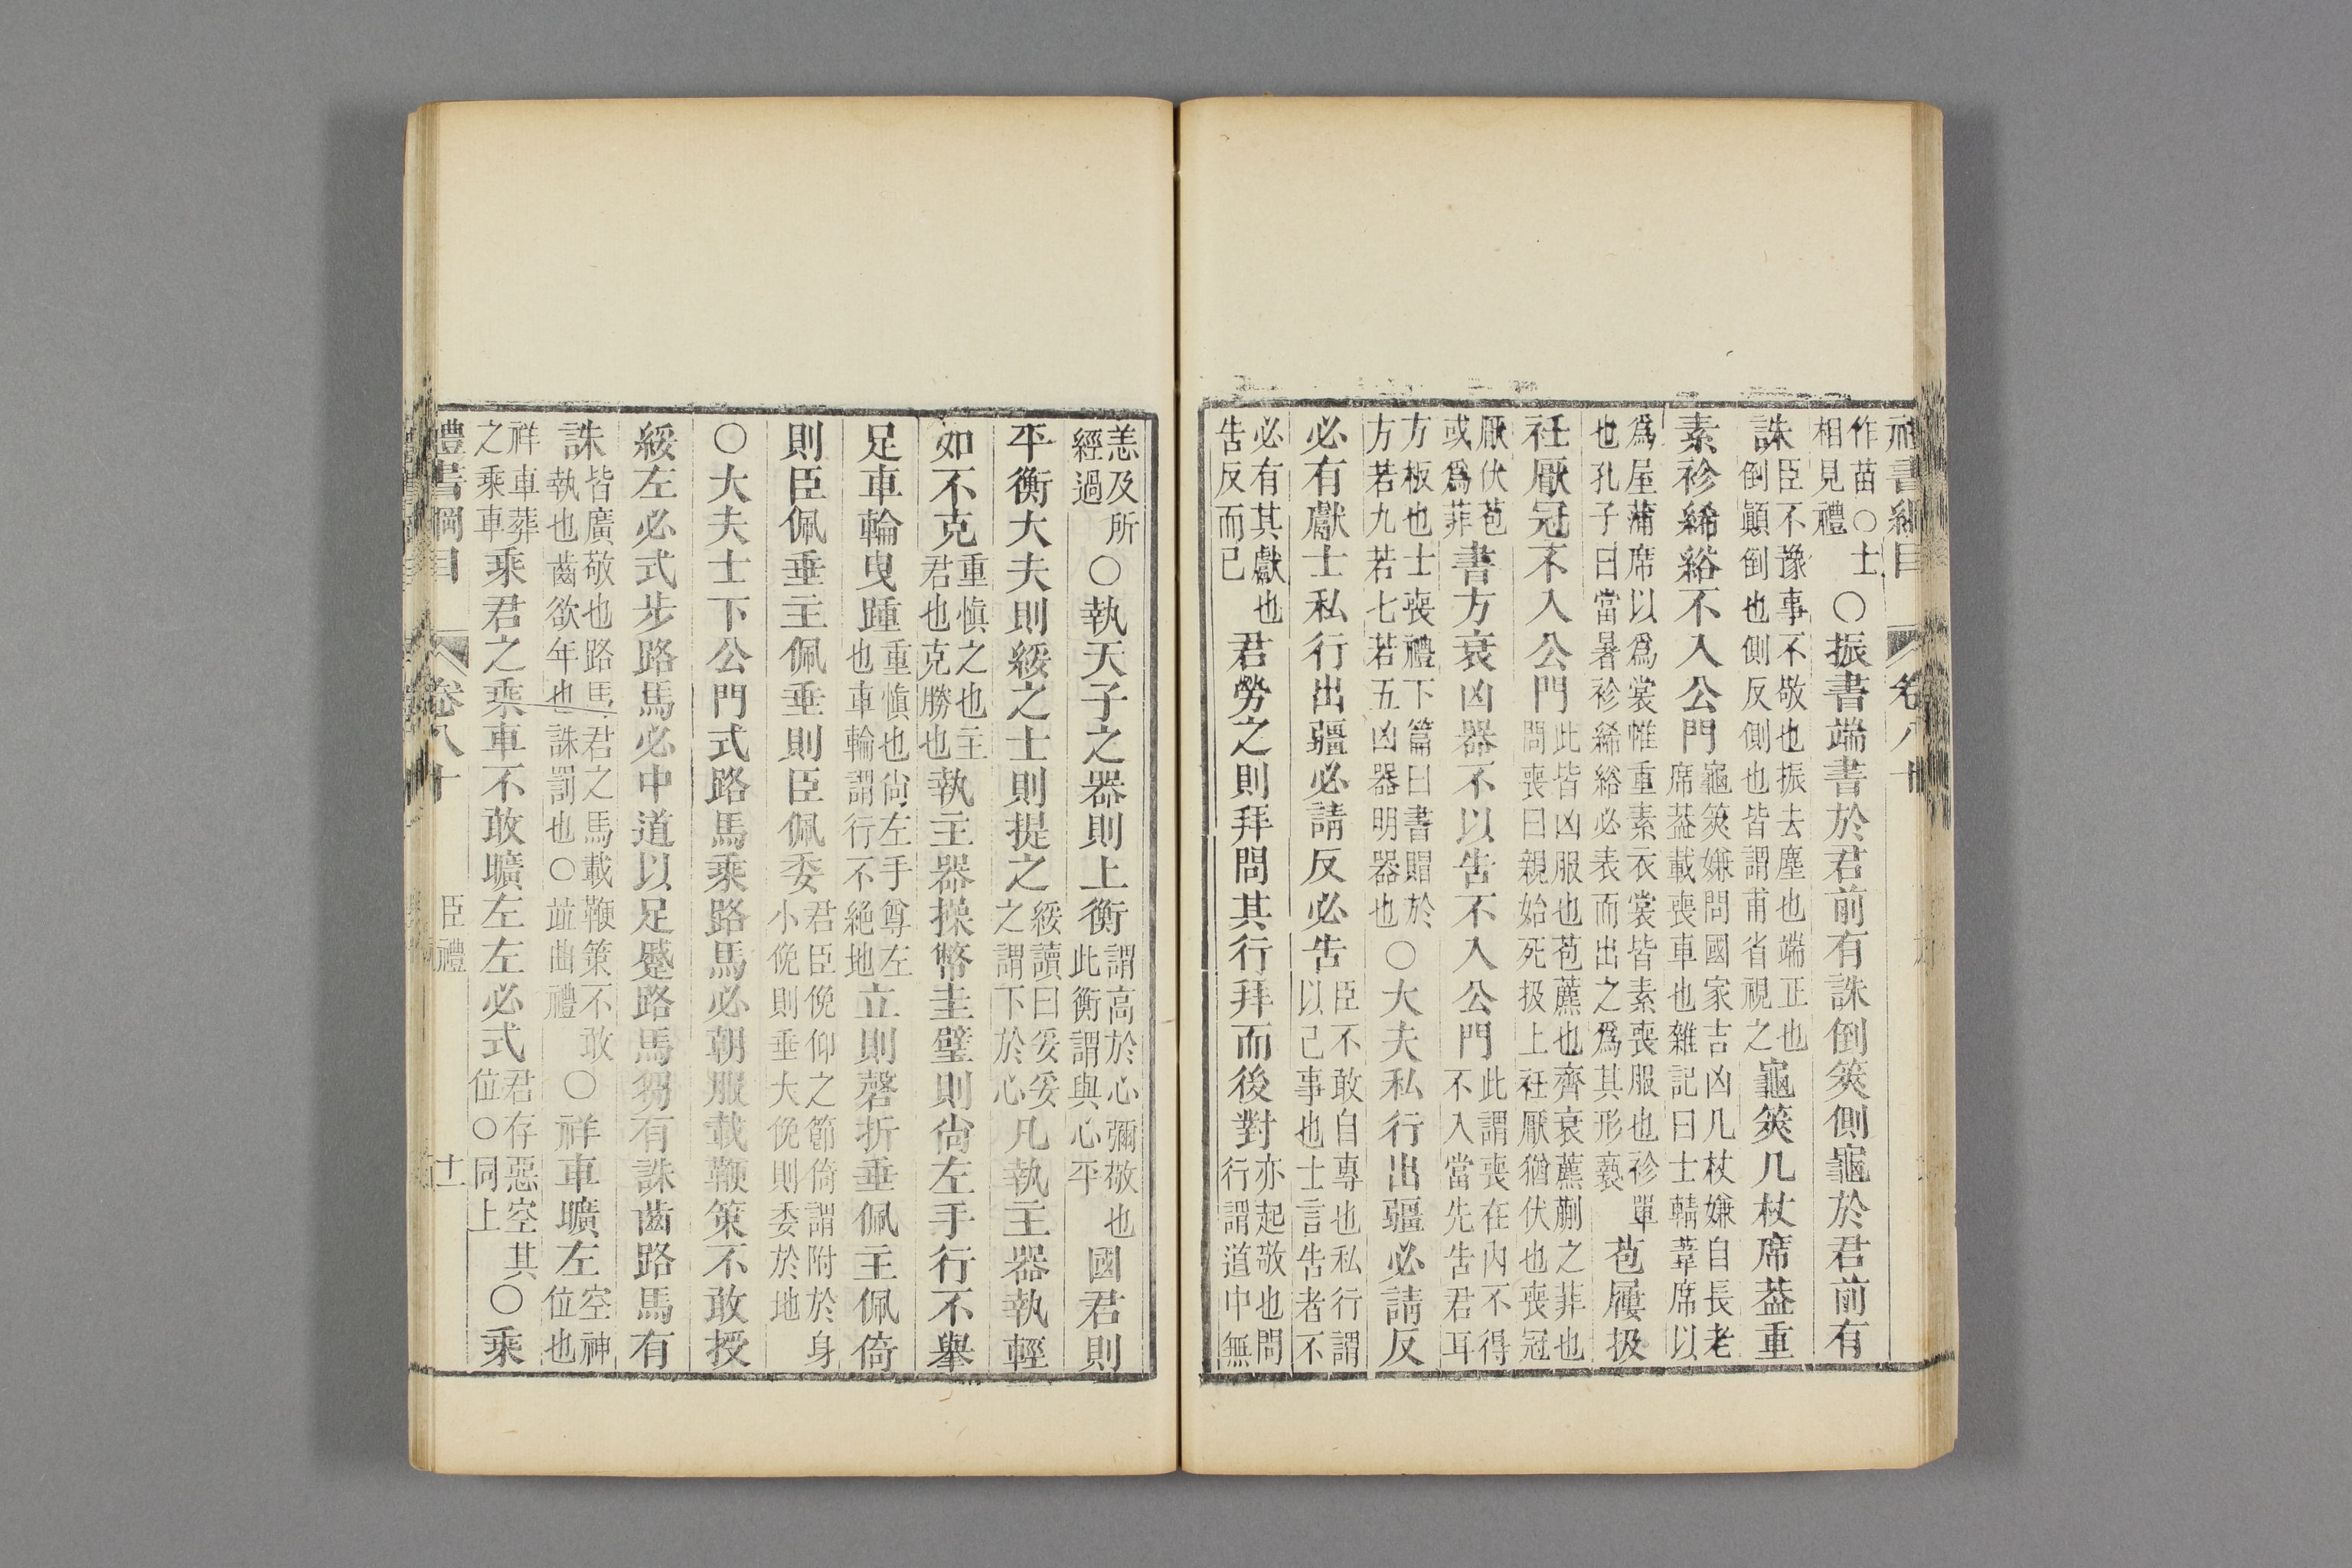 書綱目 卷八十
作苗○士相見禮○振書端書於君前有誅倒筴側龜於君前有
誅臣不豫事不敬也振去塵也端正也倒顚倒也側反側也皆謂甫省視之龜筴几杖席葢重
素袗絺綌不入公門龜筴嫌問國家吉凶几杖嫌自長老席葢載喪車也雜記曰士輤葦席以
爲屋蒲席以爲裳帷重素衣裳皆素喪服也袗單也孔子曰當暑袗絺綌必表而出之爲其形褻苞屨扱
衽厭冠不入公門此皆凶服也苞藨也齊衰藨蒯之菲也問喪曰親始死扱上衽厭猶伏也喪冠
厭伏苞或爲菲書方衰凶器不以吿不入公門此謂喪在內不得不入當先吿君耳
方板也士喪禮下篇曰書賵於方若九若七若五凶器明器也○大夫私行出疆必請反
必有獻士私行出疆必請反必吿臣不敢自專也私行謂以己事也士言吿者不
必有其獻也吿反而已君勞之則拜問其行拜而後對亦起敬也問行謂道中無
恙及所經過○執天子之器則上衡謂高於心彌敬也此衡謂與心平國君則
平衡大夫則綏之士則提之綏讀曰妥妥之謂下於心凡執主器執輕
如不克重愼之也主君也克勝也執主器操幣圭璧則尙左手行不舉
足車輪曳踵重愼也尙左手尊左也車輪謂行不絶地立則磬折垂佩主佩倚
則臣佩垂主佩垂則臣佩委君臣俛仰之節倚謂附於身小俛則垂大俛則委於地
○大夫士下公門式路馬乘路馬必朝服載鞭策不敢授
綏左必式步路馬必中道以足蹙路馬芻有誅齒路馬有
誅皆廣敬也路馬君之馬載鞭策不敢執也齒欲年也誅罰也○竝曲禮○祥車曠左空神位也
祥車葬之乘車乘君之乘車不敢曠左左必式君存惡空其位○同上○乘
禮書綱目 卷八十 臣禮 十一